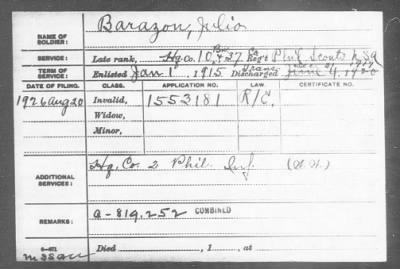 Barazon, Julio
NAME OF SOLDIER:
SERVICE: Late rank, Hq. Co. 10, & 37, Co Bn Reg't Phil Scouts USA
TERM OF SERVICE: Enlisted Jan 1, 1915, Discharged June 4, 1920
DATE OF FILING. CLASS. APPLICATION NO. LAW. CERTIFICATE NO.
1926 Aug 20 Invalid, 1553181 R/C.
Widow,
Minor,
ADDITIONAL SERVICES: Hq. Co. 2 Phil. Inf. (N.G.)
REMARKS: a-819,252 COMBINED
Died , 1 , at